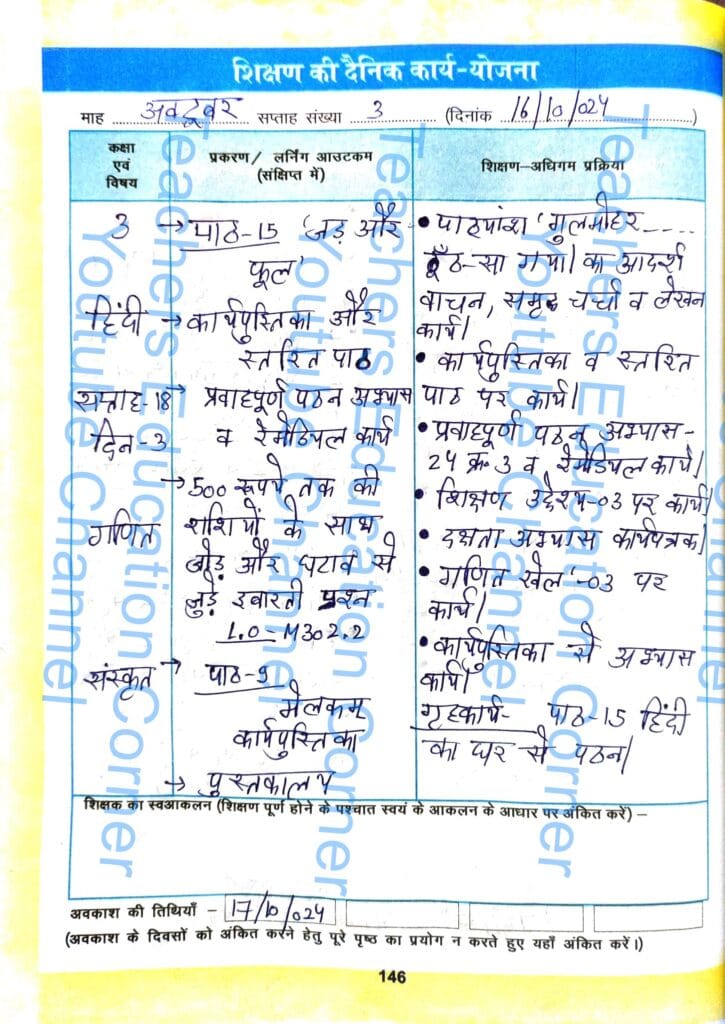 शिक्षण की दैनिक कार्य-योजना
माह अक्टूबर सप्ताह संख्या 3 (दिनांक 16/10/024)
कक्षा एवं विषय
प्रकरण/ लर्निंग आउटकम (संक्षिप्त में)
शिक्षण-अधिगम प्रक्रिया
3
हिंदी
सप्ताह-18
दिन-3
गणित
संस्कृत
→ पाठ-15 'जड़ और
फूल'
→ कार्यपुस्तिका और
स्तरित पाठ
→ प्रवाहपूर्ण पठन अभ्यास
व रेमेडियल कार्य
→ 500 रूपये तक की
राशियों के साथ
जोड़ और घटाव से
जुड़े इबारती प्रश्न
L.O-M302.2
→ पाठ-9
मेलकम्
कार्यपुस्तिका
→ पुस्तकालय
• पाठ्यांश 'गुलमोहर ----
ठूँठ-सा गया। का आदर्श
वाचन, समूह चर्चा व लेखन
कार्य।
• कार्यपुस्तिका व स्तरित
पाठ पर कार्य।
• प्रवाहपूर्ण पठन अभ्यास-
24 क्र. 3 व रेमेडियल कार्य।
• शिक्षण उद्देश्य-03 पर कार्य।
• दक्षता अभ्यास कार्यपत्रक।
• गणित खेल'-03 पर
कार्य।
• कार्यपुस्तिका से अभ्यास
कार्य।
गृहकार्य- पाठ-15 हिंदी
का घर से पठन।
शिक्षक का स्वआकलन (शिक्षण पूर्ण होने के पश्चात स्वयं के आकलन के आधार पर अंकित करें) –
अवकाश की तिथियाँ – 17/10/024
(अवकाश के दिवसों को अंकित करने हेतु पूरे पृष्ठ का प्रयोग न करते हुए यहाँ अंकित करें।)
146
Teachers Education Corner
Youtube Channel
Teachers Education Corner
Youtube Channel
Teachers Education Corner
Youtube Channel